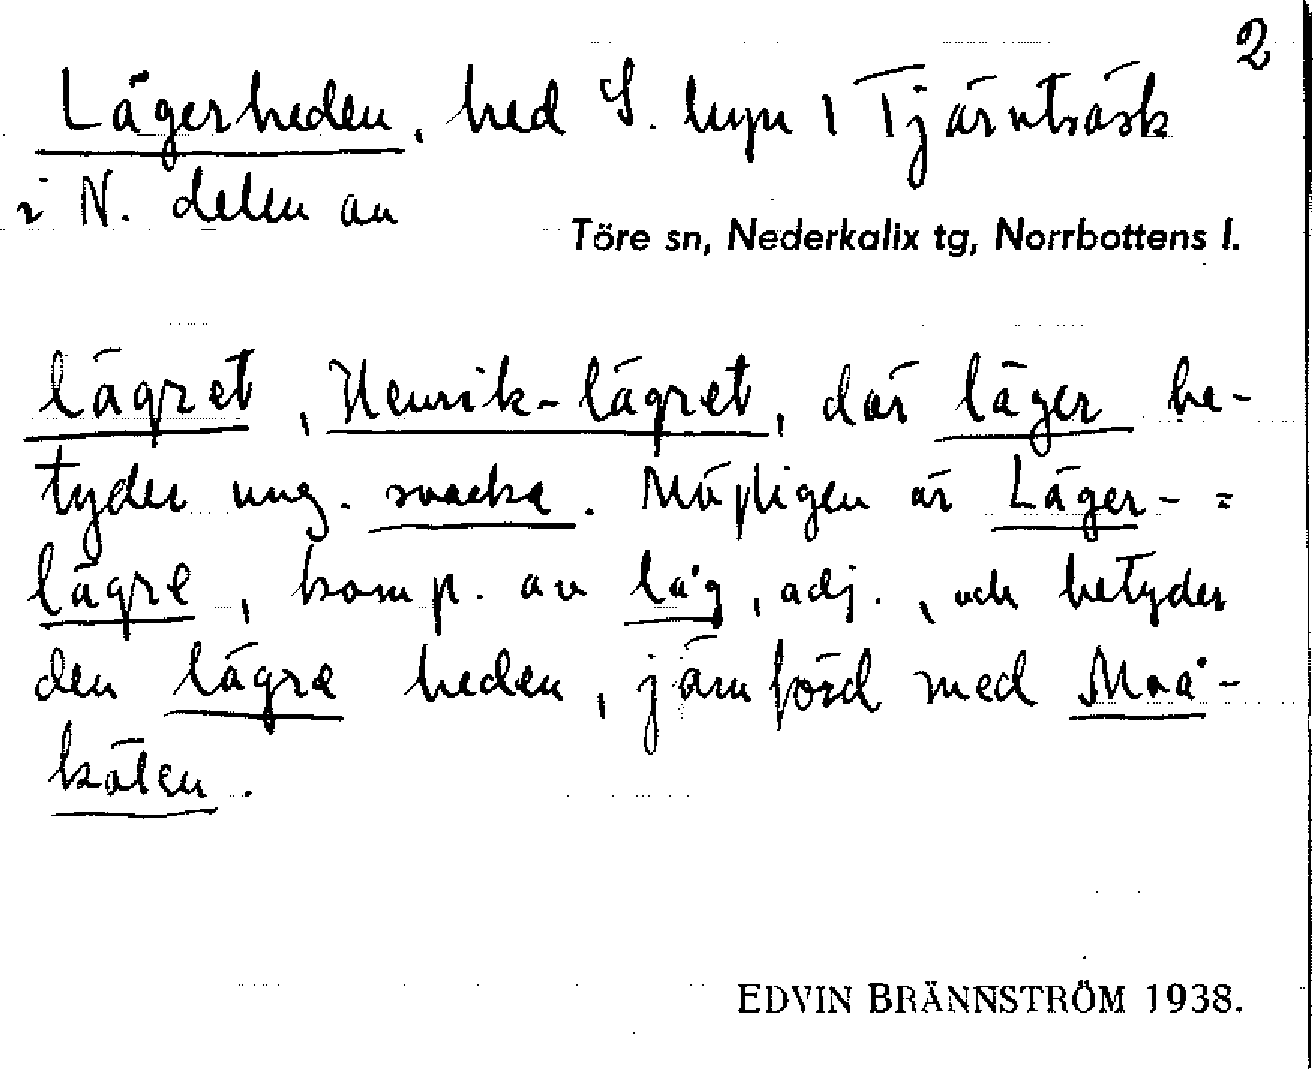 2
Lägerheden, hed S. byn 1 Tjärnträsk
i N. delen av
Töre sn, Nederkalix tg, Norrbottens l.
lägret, Henrik-lägret, där läger be-
tyder ung. svacka. Möjligen är Läger- =
lägre, komp. av låg, adj., och betyder
den lägre heden, jämförd med Moå-
kölen.
EDVIN BRÄNNSTRÖM 1938.